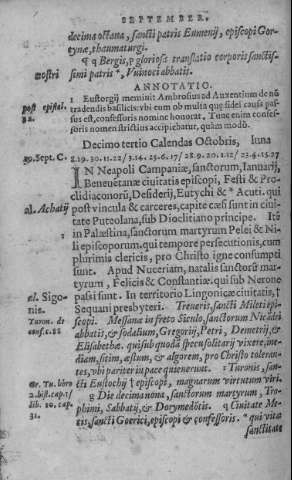 SEPTEMBER.
decima octaua, sancti patris Eumenij, episcopi Gor-
tynæ, thaumaturgi.
¶ q Bergis, p gloriosa translatio corporis sanctis-
nostri simi patris *, Vuinoci abbatis.
ANNOTATIO.
post epistol. 1 Eustorgij meminit Ambrosius ad Auxentium de nō
32. tradendis basilicis: vbi eum ob multa quæ fidei causa pas-
sus est, confessoris nomine honorat. Tunc enim confes-
soris nomen strictius accipiebatur, quàm modò.
Decimo tertio Calendas Octobris, luna
19. Sept. C. 2.19.30.11.22/ 3.14.25.6.17/ 28.9.20.1.12/ 23.4.15.27
IN Neapoli Campaniæ, sanctorum, Ianuarij,
Beneuētanæ ciuitatis episcopi, Festi & Pro-
cli diaconorū, Desiderij, Eutychi & * Acuti. qui
al. Achatij post vincula & carceres, capite cæsi sunt in ciuita-
te Puteolana, sub Diocletiano principe. Itē
in Palæstina, sanctorum martyrum Pelei & Ni-
li episcoporum. qui tempore persecutionis, cum
plurimis clericis, pro Christo igne consumpti
sunt. Apud Nuceriam, natalis sanctorū mar-
tyrum, Felicis & Constantiæ. qui sub Nerone
al. Sigo- passi sunt. In territorio Lingonicæ ciuitatis, †
nis. Sequani presbyteri. Treueris, sancti Mileti epi-
Turon. de scopi. Messana in freto Siculo, sanctorum Nicādri
conf. c.18 abbatis, & sodalium, Gregorij, Petri, Demetrij, &
Elisabethæ. qui sub quodā specu solitarij vixere, ine-
diam, sitim, æstum, & algorem, pro Christo toleran-
tes, vbi pariter in pace quieuerunt. Turonis, san-
Gr. Tu. libro cti Eustochij † episcopi, magnarum virtutum viri.
2. hist. cap.1/ q Die decimanona, sanctorum martyrum, Tro-
& lib. 10. cap. phimi, Sabbatij, & Dorymedōtis. q Ciuitate Me-
31. tis, sancti Goerici, episcopi & confessoris. * qui vita
sanctitate